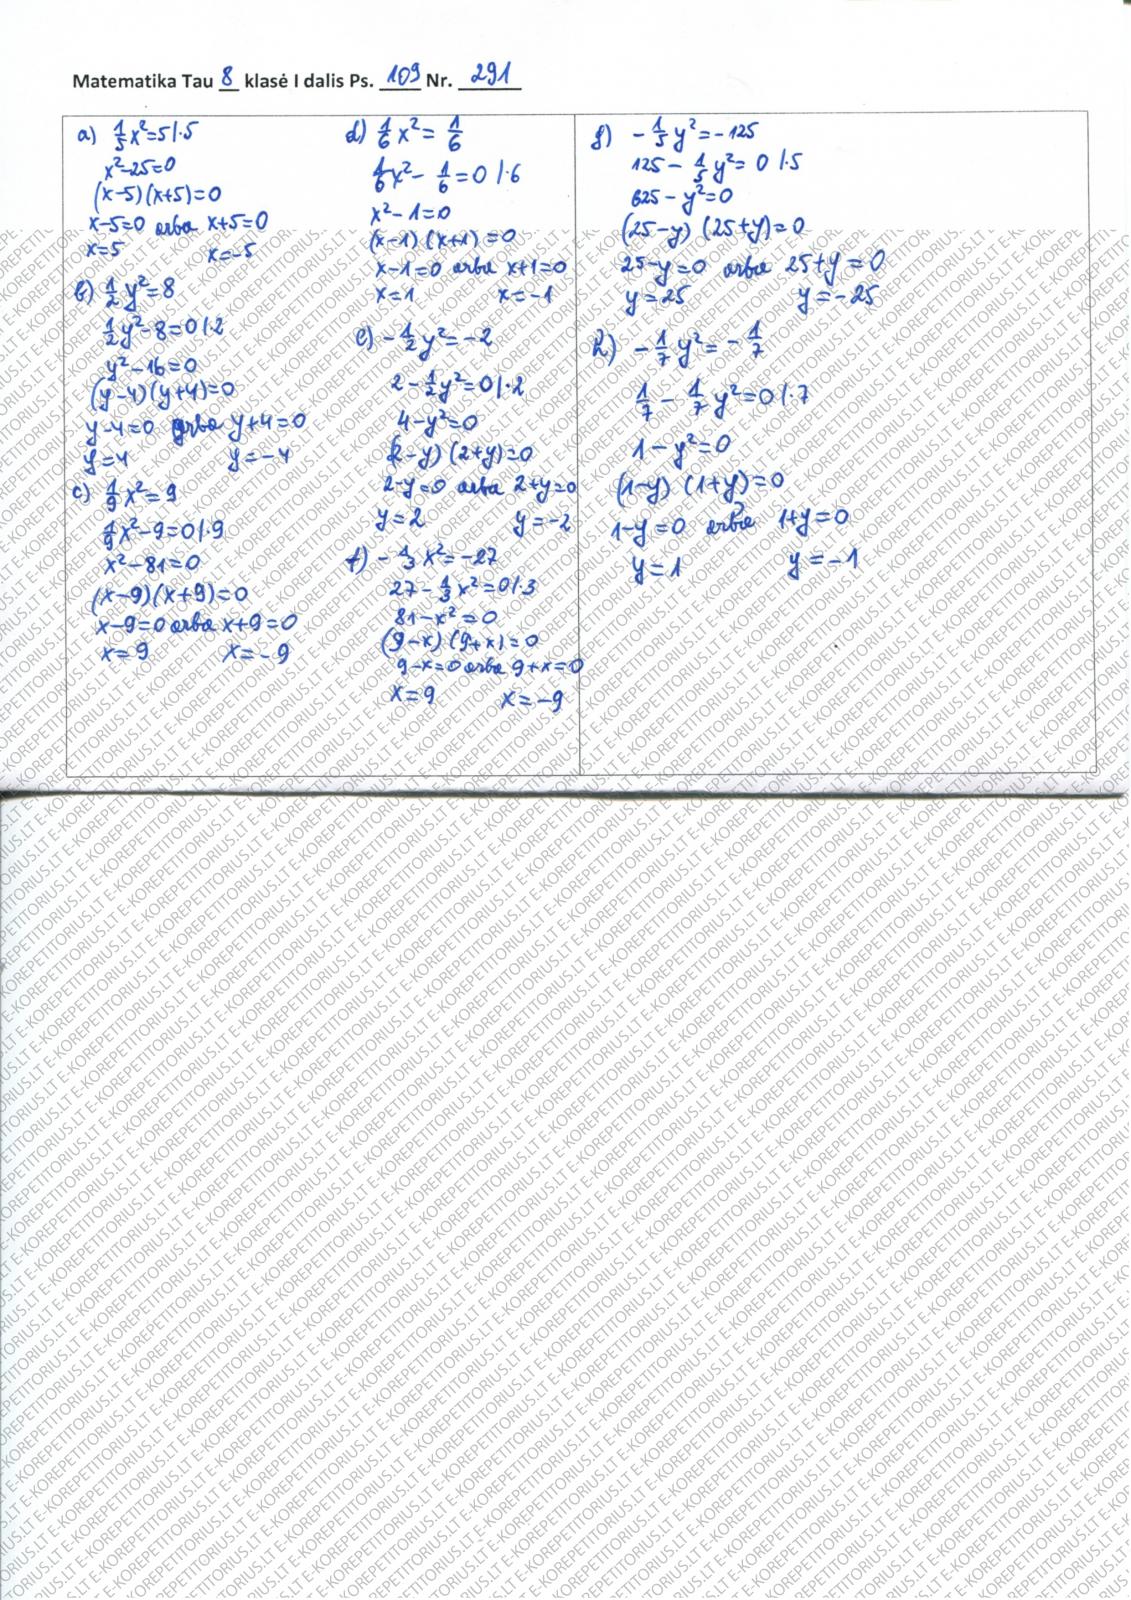 Matematika Tau 8 klasė I dalis Ps. 109 Nr. 291
a) 1/5 x²=5 |·5
x²-25=0
(x-5)(x+5)=0
x-5=0 arba x+5=0
x=5 x=-5
b) 1/2 y²=8
1/2 y²-8=0 |·2
y²-16=0
(y-4)(y+4)=0
y-4=0 arba y+4=0
y=4 y=-4
c) 1/9 x²=9
1/9 x²-9=0 |·9
x²-81=0
(x-9)(x+9)=0
x-9=0 arba x+9=0
x=9 x=-9
d) 1/6 x²= 1/6
1/6 x²- 1/6=0 |·6
x²-1=0
(x-1)(x+1)=0
x-1=0 arba x+1=0
x=1 x=-1
e) -1/2 y²=-2
2-1/2 y²=0 |·2
4-y²=0
(2-y)(2+y)=0
2-y=0 arba 2+y=0
y=2 y=-2
f) -1/3 x²=-27
27-1/3 x²=0 |·3
81-x²=0
(9-x)(9+x)=0
9-x=0 arba 9+x=0
x=9 x=-9
g) -1/5 y²=-125
125-1/5 y²=0 |·5
625-y²=0
(25-y)(25+y)=0
25-y=0 arba 25+y=0
y=25 y=-25
h) -1/7 y²=-1/7
1/7-1/7 y²=0 |·7
1-y²=0
(1-y)(1+y)=0
1-y=0 arba 1+y=0
y=1 y=-1
E-KOREPETITORIUS.LT